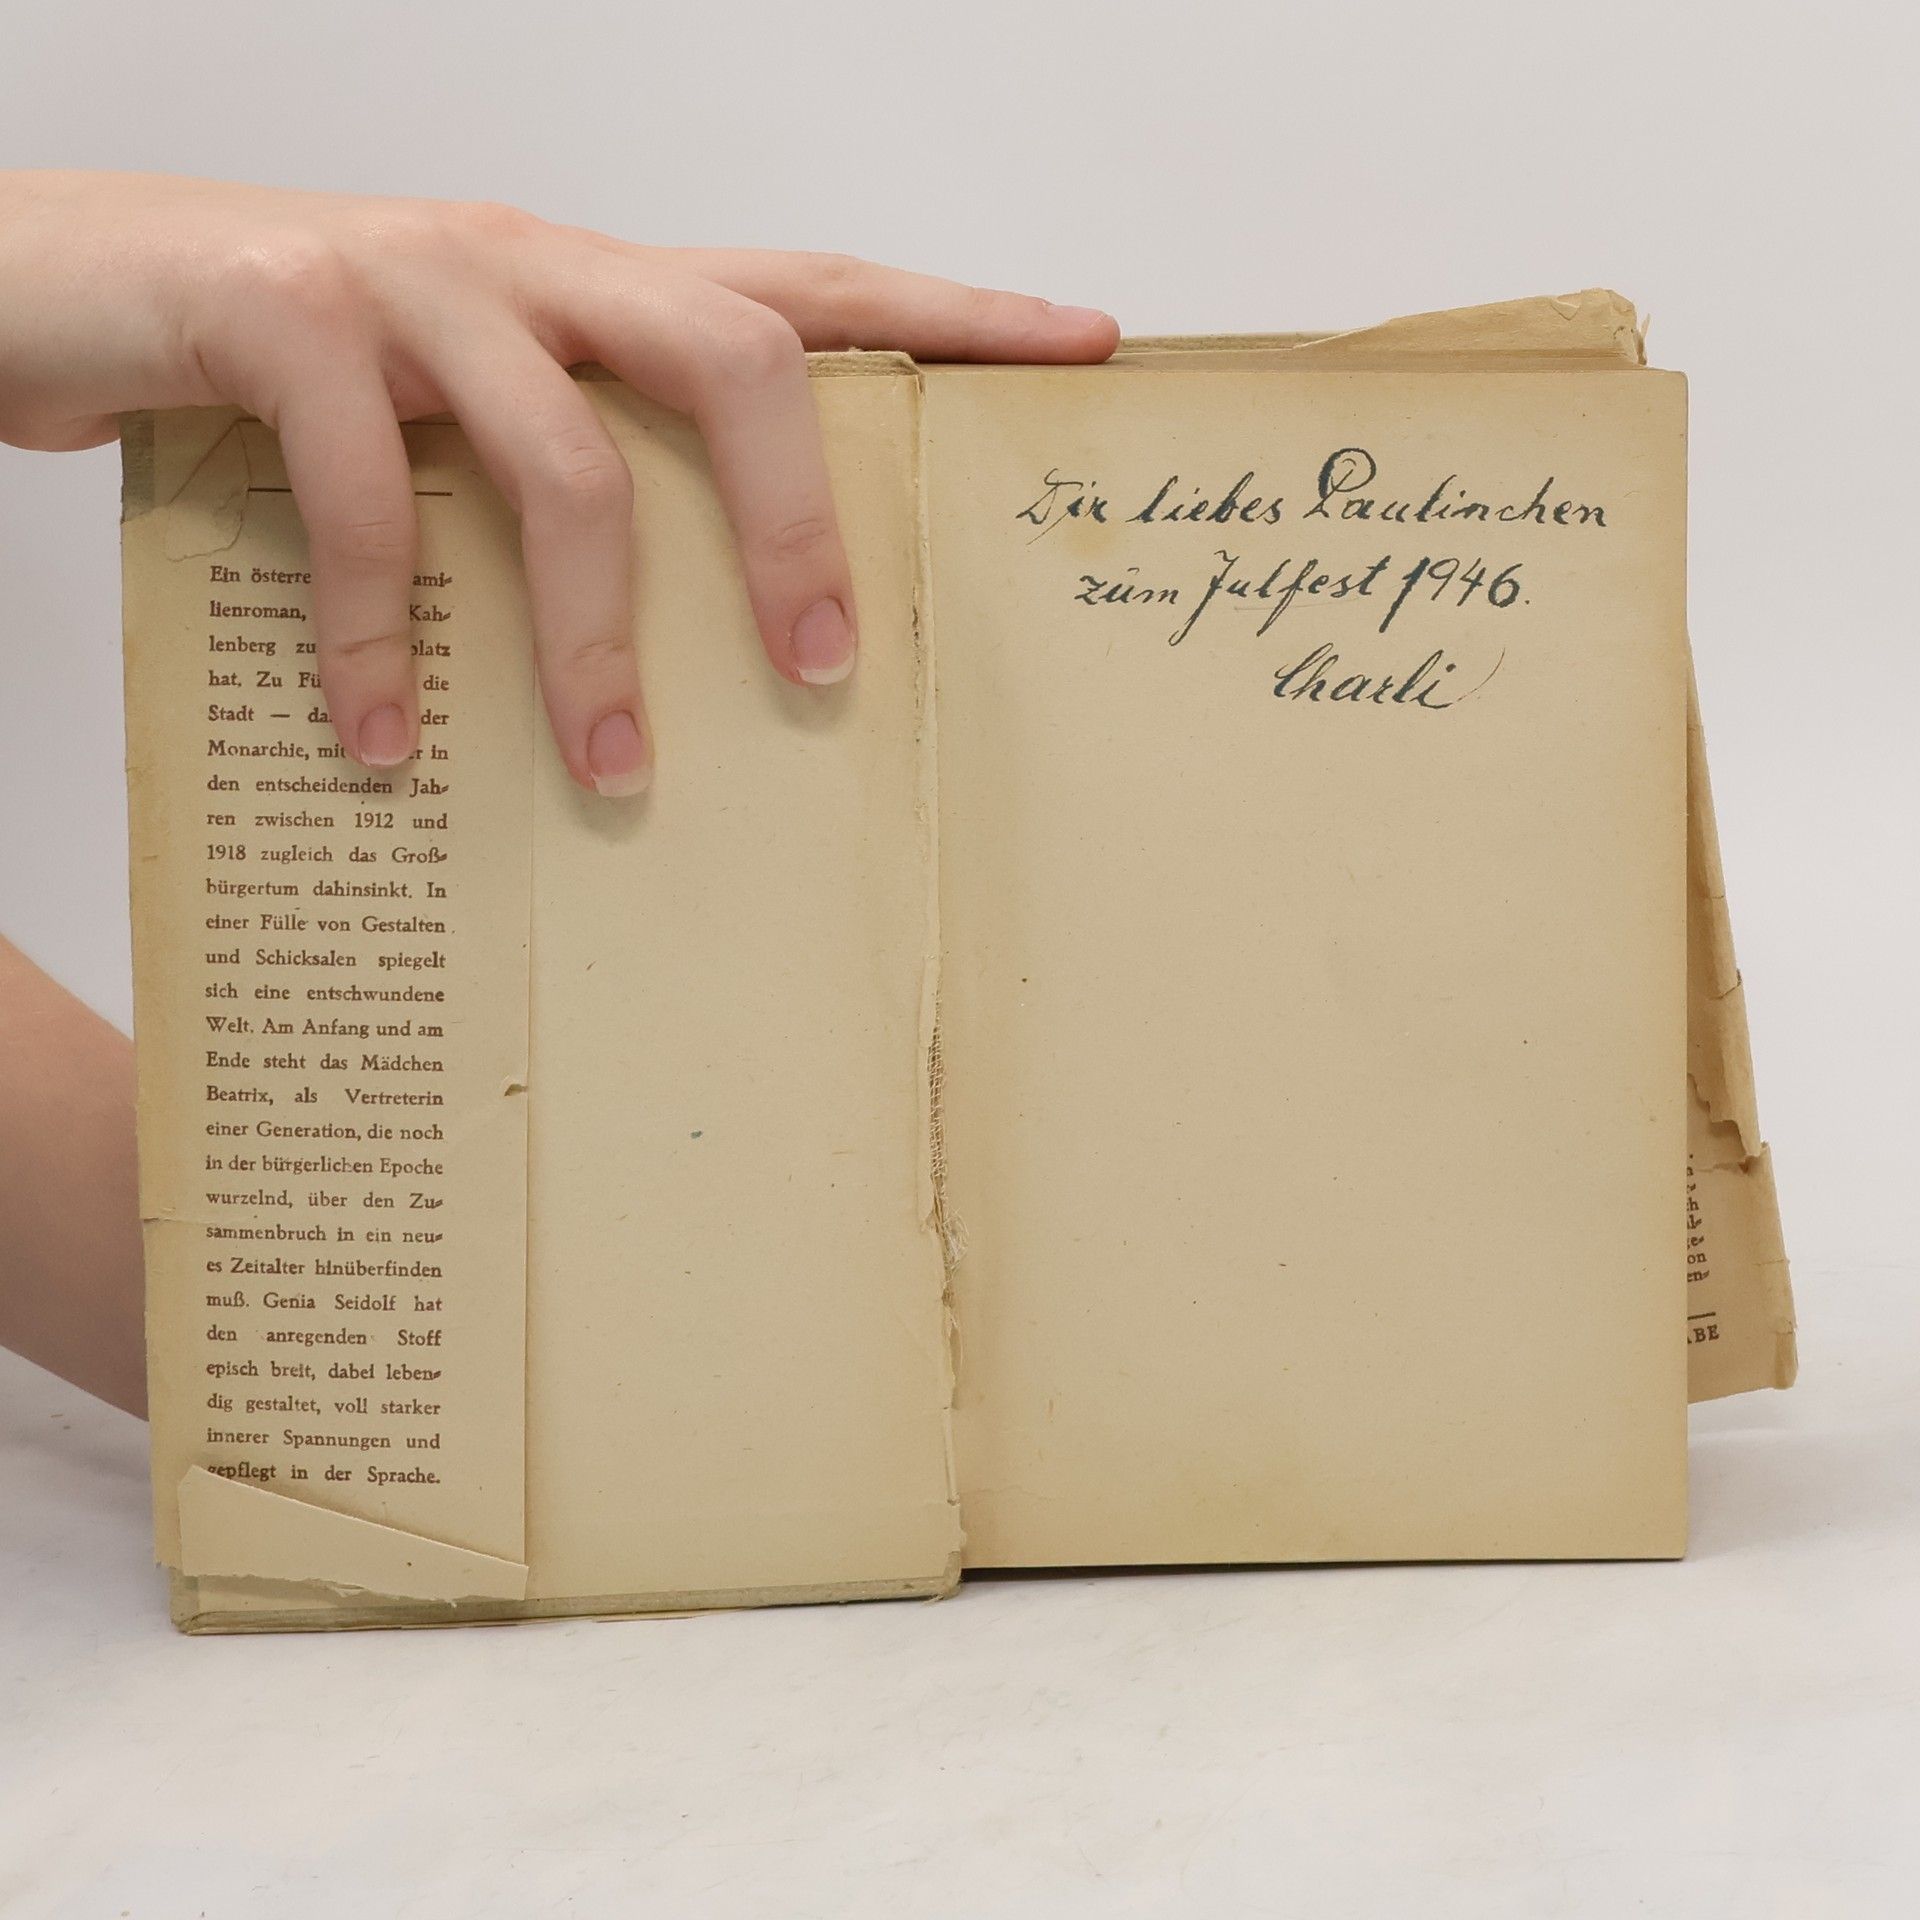 Ein österre ami-
lienroman, Kah-
lenberg zu platz
hat. Zu Fü die
Stadt — da der
Monarchie, mit r in
den entscheidenden Jah-
ren zwischen 1912 und
1918 zugleich das Groß-
bürgertum dahinsinkt. In
einer Fülle von Gestalten
und Schicksalen spiegelt
sich eine entschwundene
Welt. Am Anfang und am
Ende steht das Mädchen
Beatrix, als Vertreterin
einer Generation, die noch
in der bürgerlichen Epoche
wurzelnd, über den Zu-
sammenbruch in ein neu-
es Zeitalter hinüberfinden
muß. Genia Seidolf hat
den anregenden Stoff
episch breit, dabei leben-
dig gestaltet, voll starker
innerer Spannungen und
gepflegt in der Sprache.
Dir liebes Paulinchen
zum Julfest 1946.
Charli
on
en-
ABE